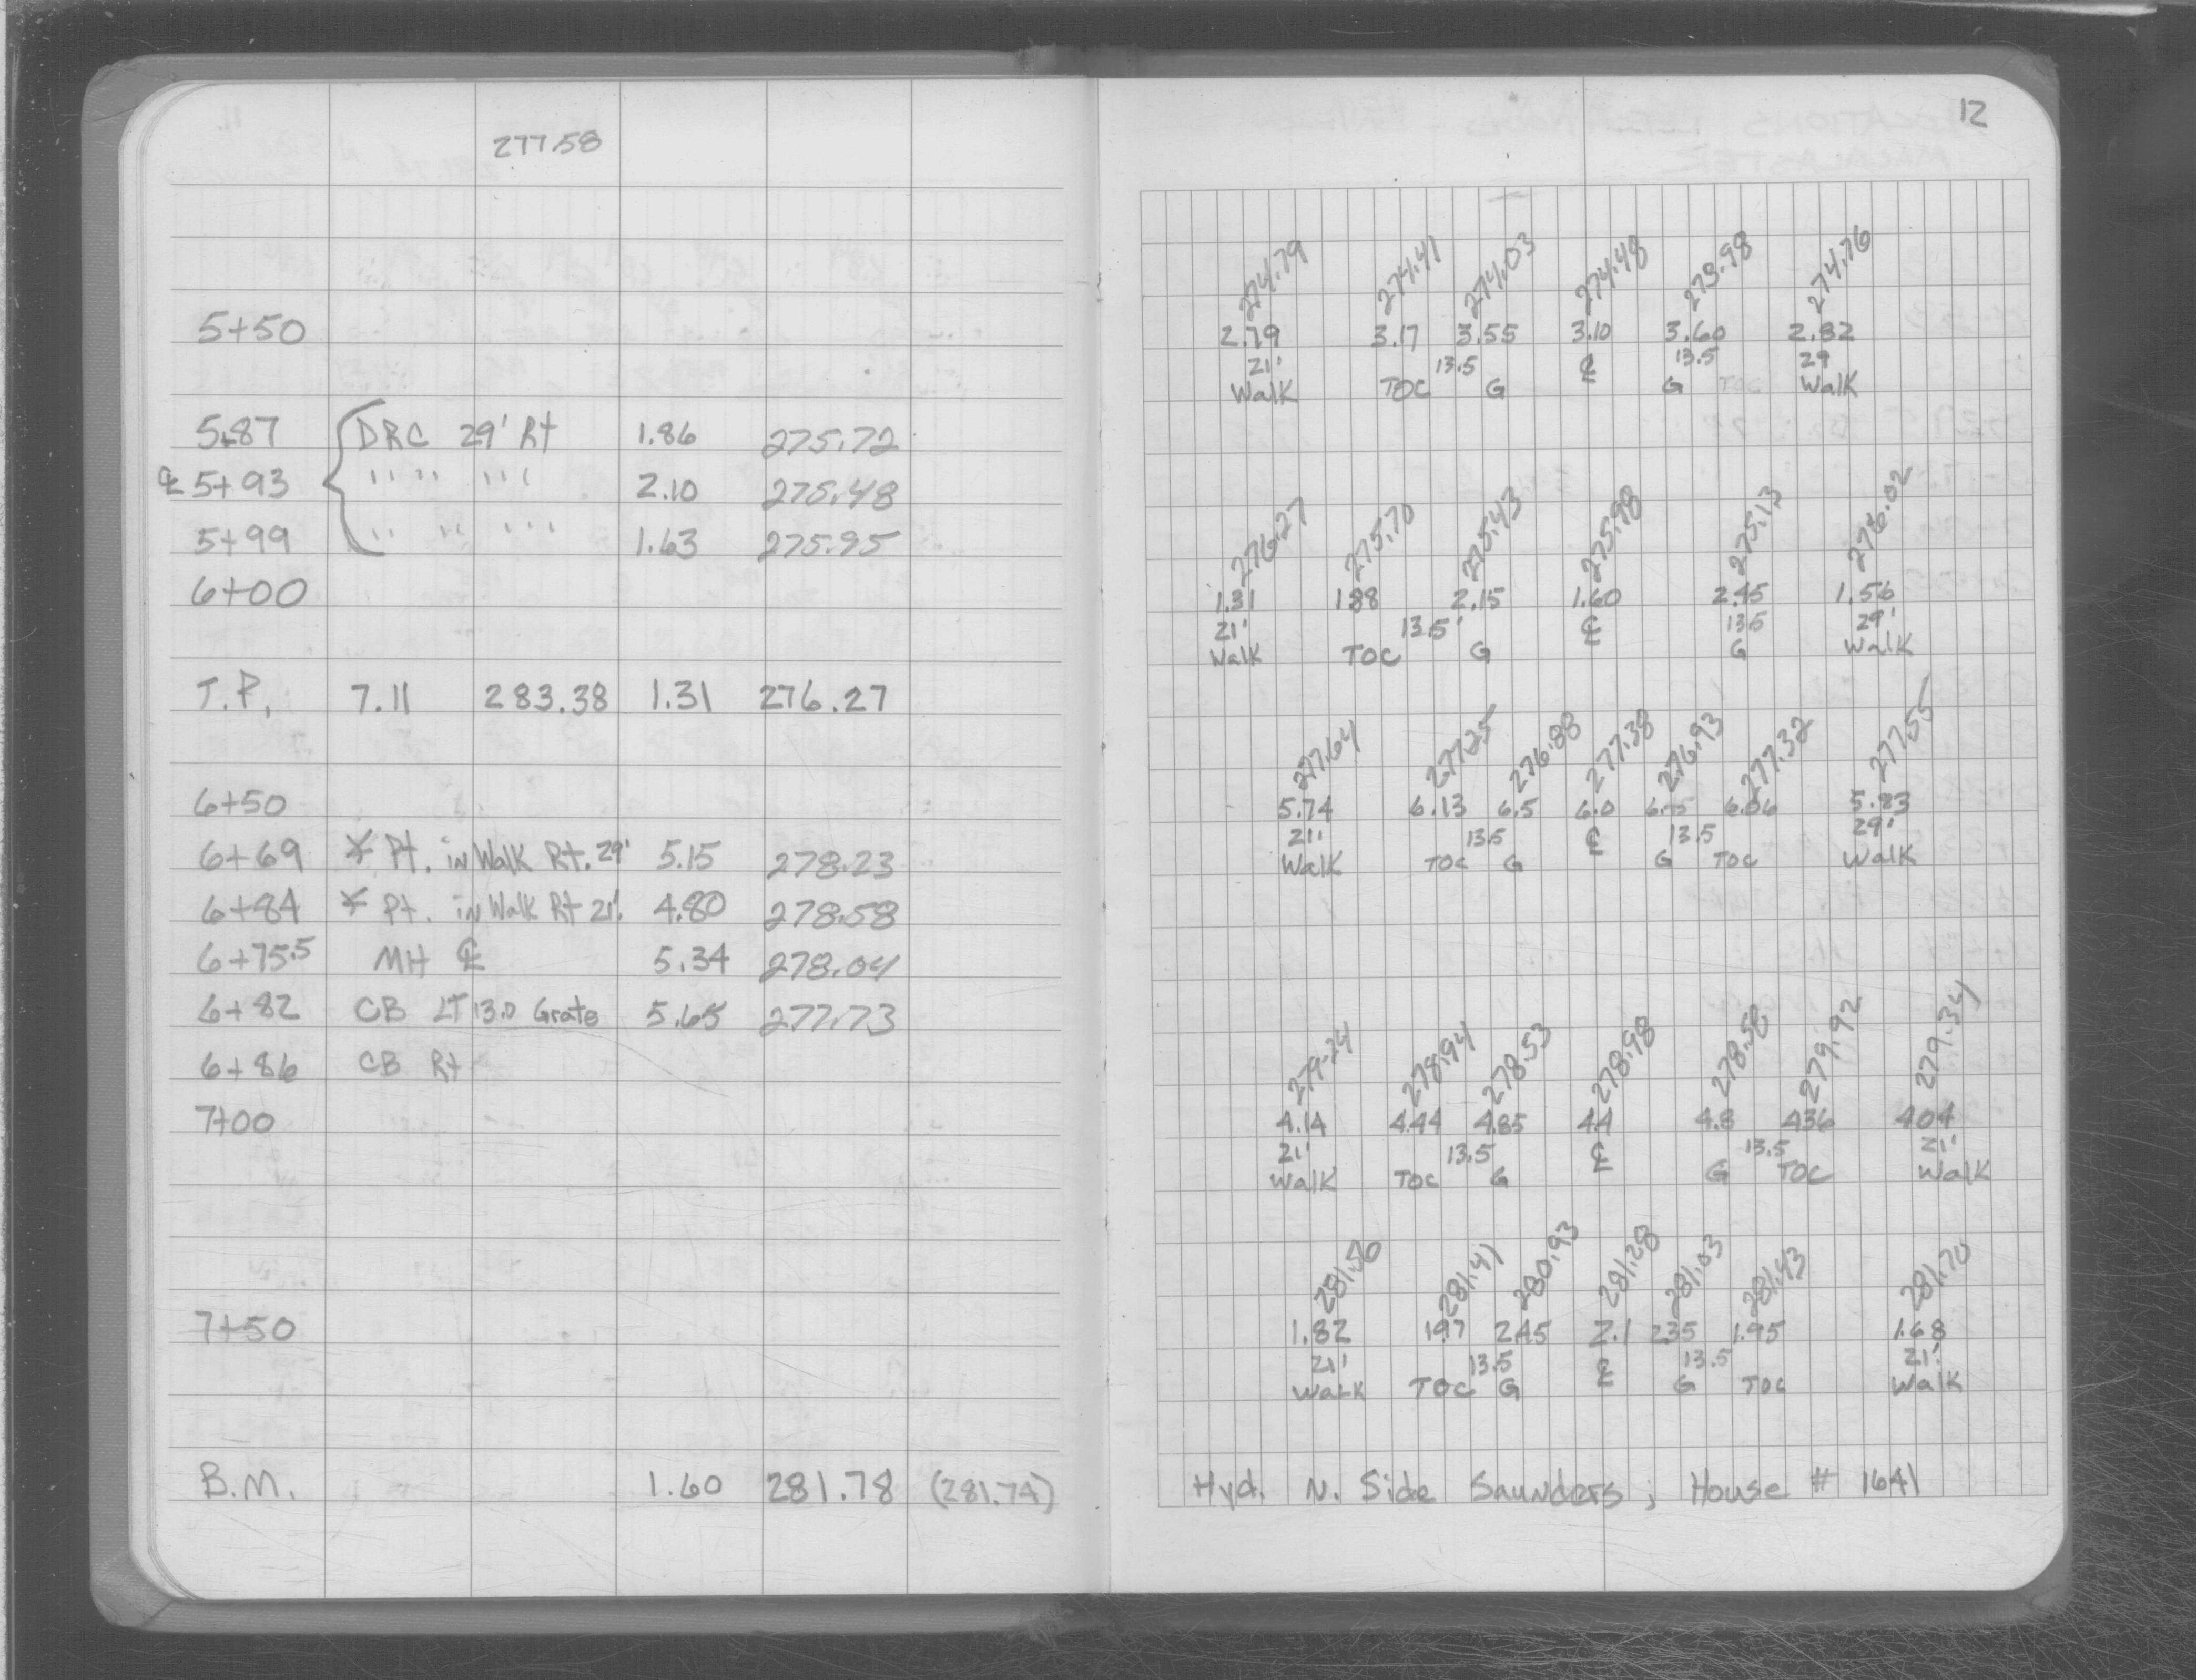 277.58
5+50
5+87 DRC 29' Rt 1.86 275.72
℄ 5+93 " " " " 2.10 275.48
5+99 " " " " 1.63 275.95
6+00
T.P. 7.11 283.38 1.31 276.27
6+50
6+69 Pt. in Walk Rt. 29' 5.15 278.23
6+84 Pt. in Walk Rt 21' 4.80 278.58
6+75.5 MH ℄ 5.34 278.04
6+82 CB LT 13.0 Grate 5.65 277.73
6+86 CB Rt
7+00
7+50
B.M. 1.60 281.78 (281.74)
12
274.79 274.41 274.03 274.48 273.98 274.76
2.79 3.17 3.55 3.10 3.60 2.82
21' 13.5 ℄ 13.5 29
Walk TOC G G TOC Walk
276.27 275.70 275.43 275.98 275.13 276.02
1.31 1.88 2.15 1.60 2.45 1.56
21' 13.5' ℄ 13.5 29'
Walk TOC G G Walk
277.64 277.25 276.88 277.38 276.93 277.32 277.55
5.74 6.13 6.5 6.0 6.45 6.06 5.83
21' 13.5 ℄ 13.5 29'
Walk TOC G G TOC Walk
279.24 278.94 278.53 278.98 278.58 279.92 279.34
4.14 4.44 4.85 4.4 4.8 4.36 4.04
21' 13.5 ℄ 13.5 21'
Walk TOC G G TOC Walk
281.56 281.41 280.93 281.28 281.03 281.43 281.70
1.82 1.97 2.45 2.1 2.35 1.95 1.68
21' 13.5 ℄ 13.5 21'
Walk TOC G G TOC Walk
Hyd. N. Side Saunders; House # 1641